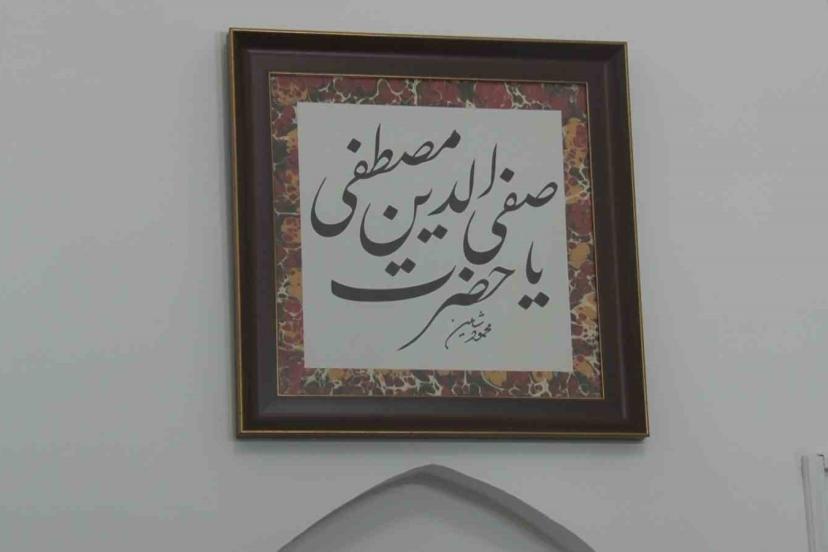 یا حضرت
صفی الدین مصطفی
محمود شاهین